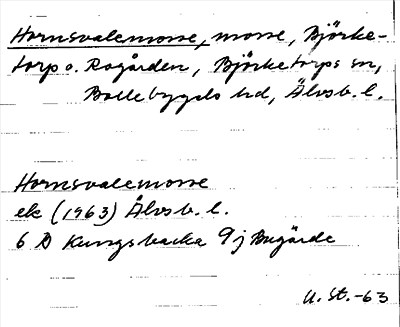 Hornsvalemosse, mosse, Björke-
torp o. Rogården, Björketorps sn,
Bollebygds hd, Älvsb. l.
Hornsvalemosse
ek (1963) Älvsb. l.
6 B Kungsbacka 9 j Bugärde
U. St. -63